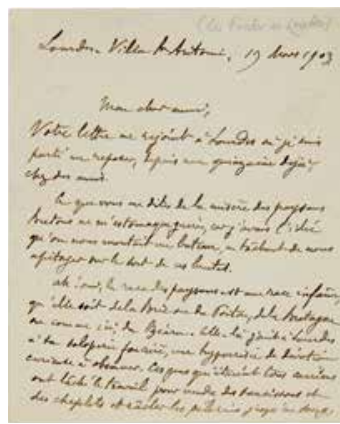 Lourdes - Villa St Antoine, 19 Mars 1903
Mon cher ami,
Votre lettre me rejoint à Lourdes où je suis
parti me reposer, depuis une quinzaine déjà,
chez des amis.
Ce que vous me dites de la misère des paysans
bretons ne m'estomaque guère, car j'avais l'idée
qu'on nous montait un bateau, en tâchant de nous
apitoyer sur le sort de ces brutes.
Ah ! oui, la race des paysans est une race infâme,
qu'elle soit de la Brie ou du Poitou, de la Bretagne
ou comme ici, du Béarn. Elle a joint à Lourdes
à sa foncière, une hypocrisie de dévotion
curieuse à observer. Ces gens qui étaient tous carriers
ont lâché le travail pour vendre des saucissons et
des chapelets et râcler les pèlerins, jusqu'au